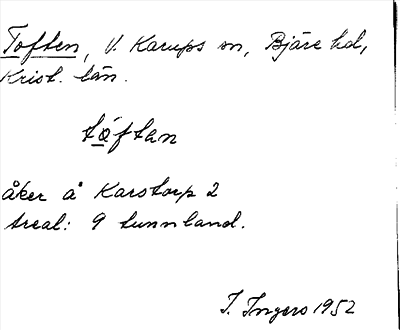 Toften, V. Karups sn, Bjäre hd,
Krist. län.
tåftan
åker å Karstorp 2
Areal: 9 tunnland.
I. Ingers 1952